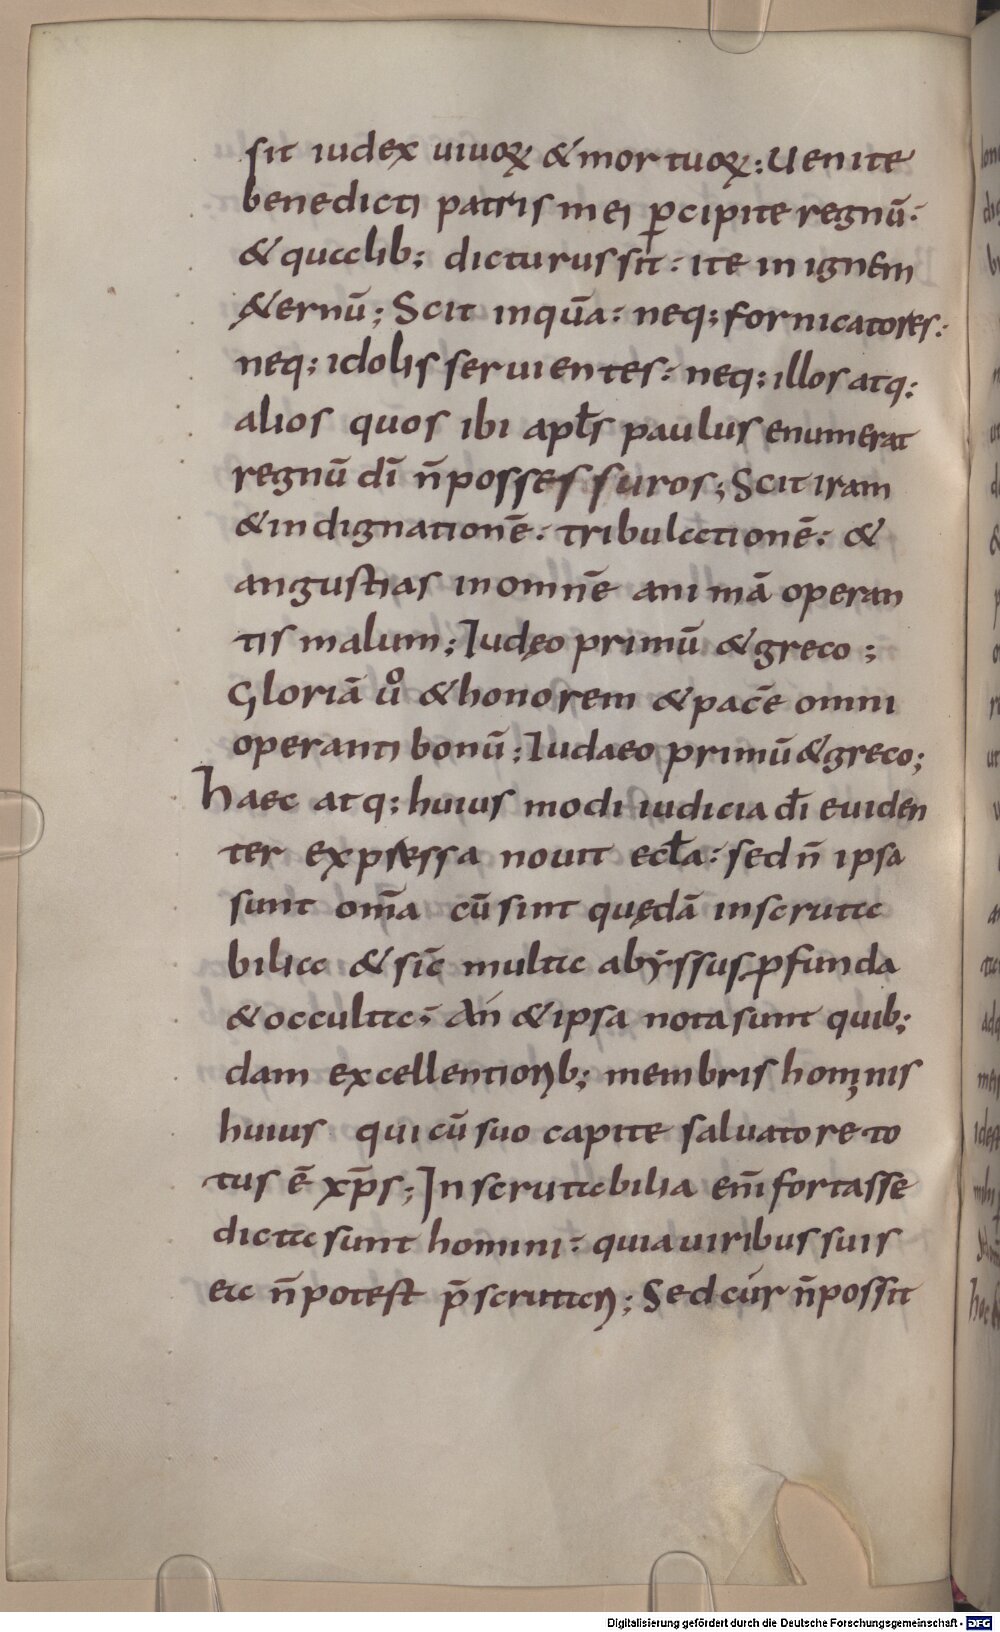 sit iudex uiuoꝝ & mortuoꝝ: Uenite
benedicti patris mei ꝑcipite regnū:
& quaelib; dicturus sit: ite in ignem
&ernū; Scit inquā: neq; fornicatores:
neq; idolis seruientes: neq; illos atq;
alios quos ibi apłs paulus enumerat
regnū dī n̄ possessuros; Scit iram
& indignationē: tribulationē: &
angustias in omnē animā operan
tis malum; Iudęo primū & greco;
Gloriā ůo & honorem & pacē omni
operanti bonū; Iudaeo primū & greco;
Haec atq; huius modi iudicia dī euiden
ter expressa nouit eclła: sed n̄ ipsa
sunt om̄a cū sint quędā inscruta
bilia & sic̄ multa abyssus ꝓfunda
& occulta; An & ipsa nota sunt quib;
dam excellentiorib; membris hominis
huius qui cū suo capite saluatore to
tus ē xp̄s; Inscrutabilia eni̅ fortasse
dicta sunt homini: quia uiribus suis
ea n̄ potest p̄scrutari; Sed cur n̄ possit
Digitalisierung gefördert durch die Deutsche Forschungsgemeinschaft - DFG